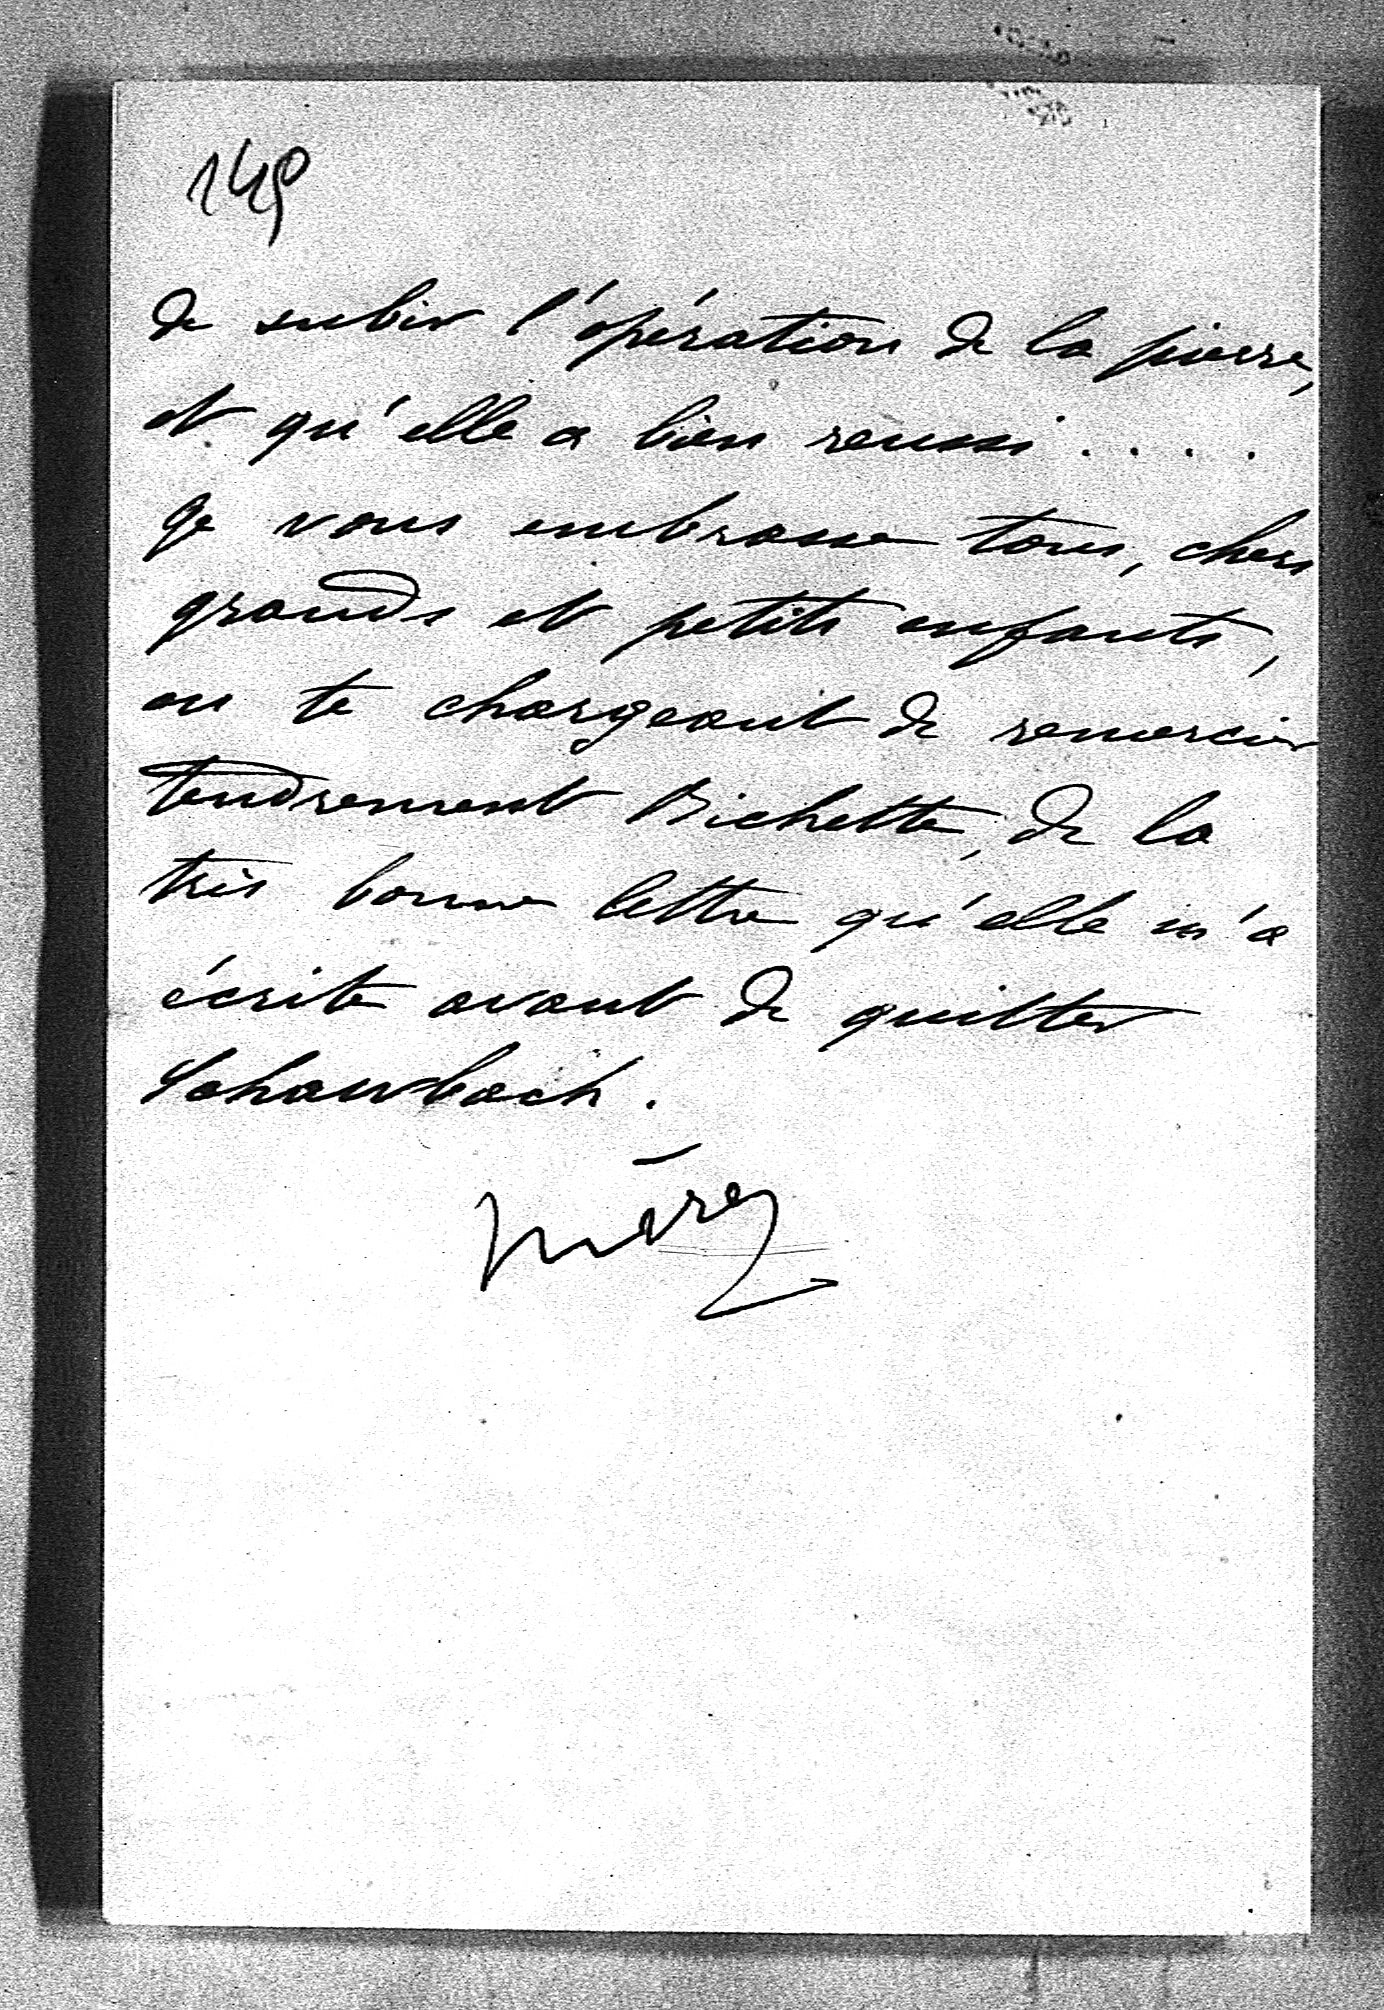 149
de subir l'opération de la pierre,
et qu'elle a bien reussi . . . . .
Je vous embrasse tous, chers
grands et petits enfants,
en te chargeant de remercier
tendrement Bichette, de la
très bonne lettre qu'elle m'a
écrite avant de quitter
Schawbach.
mère